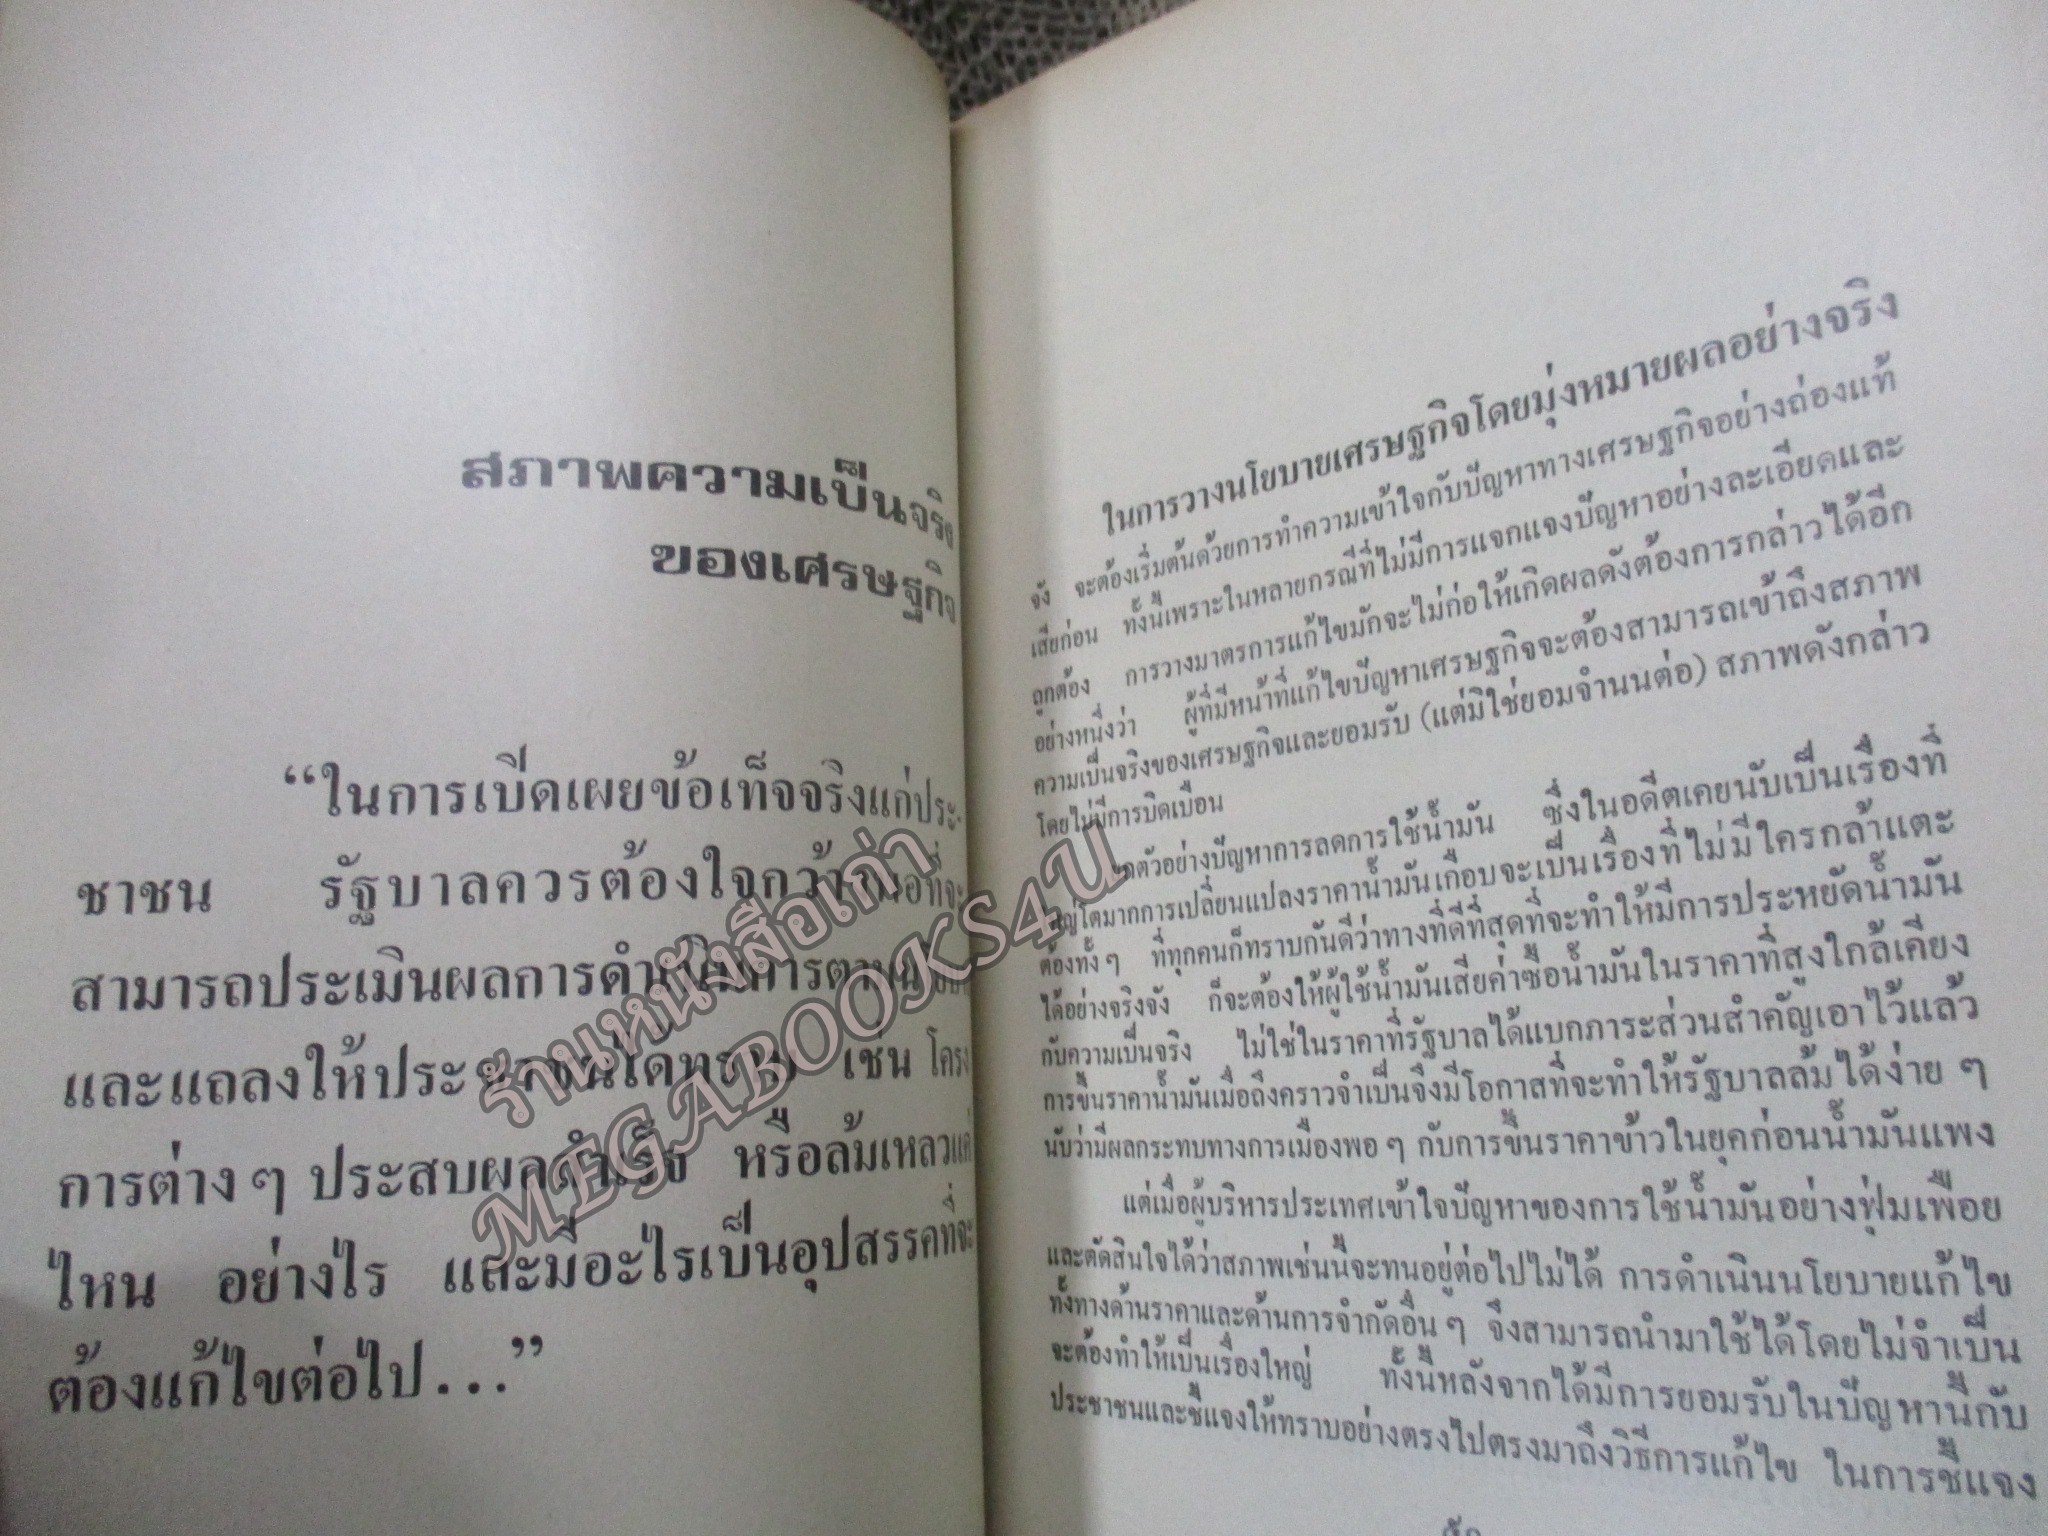 สภาพความเป็นจริง
ของเศรษฐกิจ
“ในการเปิดเผยข้อเท็จจริงแก่ประ-
ชาชน รัฐบาลควรต้องใจกว้างพอที่จะ
สามารถประเมินผลการดำเนินการตามนโยบาย
และแถลงให้ประชาชนได้ทราบ เช่น โครง
การต่างๆ ประสบผลสำเร็จ หรือล้มเหลวแค่
ไหน อย่างไร และมีอะไรเป็นอุปสรรคที่จะ
ต้องแก้ไขต่อไป...”
ในการวางนโยบายเศรษฐกิจโดยมุ่งหมายผลอย่างจริง
จัง จะต้องเริ่มต้นด้วยการทำความเข้าใจกับปัญหาทางเศรษฐกิจอย่างถ่องแท้
เสียก่อน ทั้งนี้เพราะในหลายกรณีที่ไม่มีการแจกแจงปัญหาอย่างละเอียดและ
ถูกต้อง การวางมาตรการแก้ไขมักจะไม่ก่อให้เกิดผลดังต้องการกล่าวได้อีก
อย่างหนึ่งว่า ผู้ที่มีหน้าที่แก้ไขปัญหาเศรษฐกิจจะต้องสามารถเข้าถึงสภาพ
ความเป็นจริงของเศรษฐกิจและยอมรับ (แต่มิใช่ยอมจำนนต่อ) สภาพดังกล่าว
โดยไม่มีการบิดเบือน
ตัวอย่างปัญหาการลดการใช้น้ำมัน ซึ่งในอดีตเคยนับเป็นเรื่องที่
ใหญ่โตมากการเปลี่ยนแปลงราคาน้ำมันเกือบจะเป็นเรื่องที่ไม่มีใครกล้าแตะ
ต้องทั้งๆ ที่ทุกคนก็ทราบกันดีว่าทางที่ดีที่สุดที่จะทำให้มีการประหยัดน้ำมัน
ได้อย่างจริงจัง ก็จะต้องให้ผู้ใช้น้ำมันเสียค่าซื้อน้ำมันในราคาที่สูงใกล้เคียง
กับความเป็นจริง ไม่ใช่ในราคาที่รัฐบาลได้แบกภาระส่วนสำคัญเอาไว้แล้ว
การขึ้นราคาน้ำมันเมื่อถึงคราวจำเป็นจึงมีโอกาสที่จะทำให้รัฐบาลล้มได้ง่าย ๆ
นับว่ามีผลกระทบทางการเมืองพอๆ กับการขึ้นราคาข้าวในยุคก่อนน้ำมันแพง
แต่เมื่อผู้บริหารประเทศเข้าใจปัญหาของการใช้น้ำมันอย่างฟุ่มเฟือย
และตัดสินใจได้ว่าสภาพเช่นนี้จะทนอยู่ต่อไปไม่ได้ การดำเนินนโยบายแก้ไข
ทั้งทางด้านราคาและด้านการจำกัดอื่นๆ จึงสามารถนำมาใช้ได้โดยไม่จำเป็น
จะต้องทำให้เป็นเรื่องใหญ่ ทั้งนี้หลังจากได้มีการยอมรับในปัญหานี้กับ
ประชาชนและชี้แจงให้ทราบอย่างตรงไปตรงมาถึงวิธีการแก้ไข ในการชี้แจง
ร้านหนังสือเก่า
MEGABOOKS4U